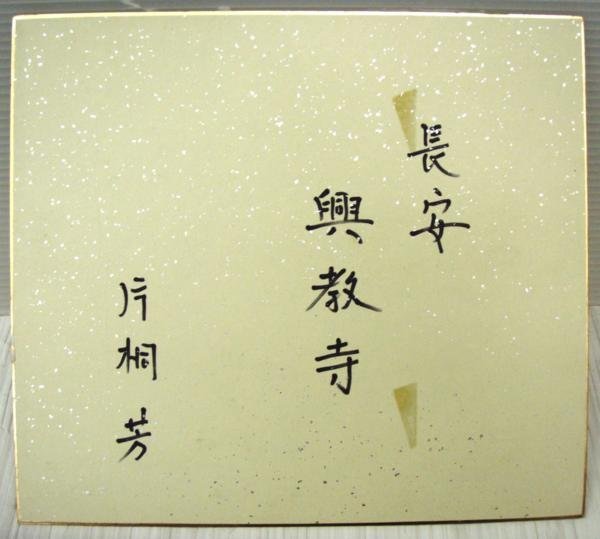 長安
興教寺
片桐芳